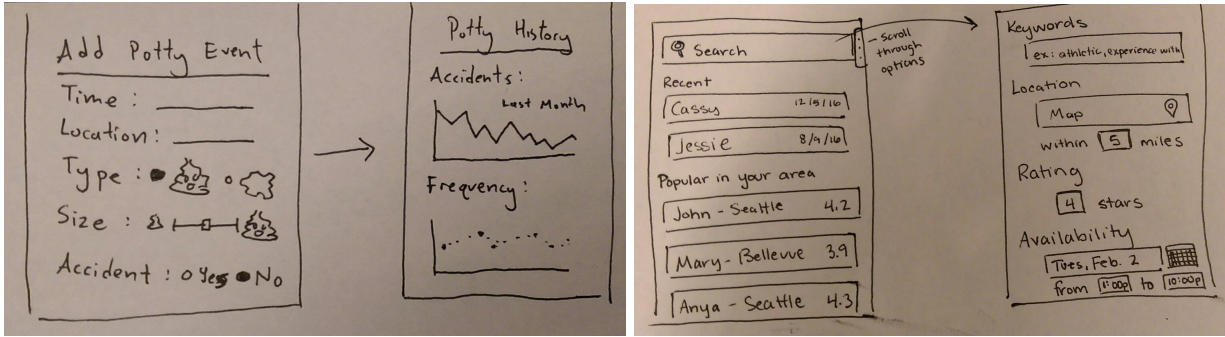 Add Potty Event
Time :
Location :
Type :
Size :
Accident : Yes No
Potty History
Accidents :
Last Month
Frequency :
Search
scroll
through
options
Recent
Cassy 12/5/16
Jessie 8/9/16
Popular in your area
John - Seattle 4.2
Mary - Bellevue 3.9
Anya - Seattle 4.3
Keywords
ex: athletic, experience with
Location
Map
within 5 miles
Rating
4 stars
Availability
Tues, Feb. 2
from 1:00p to 10:00p